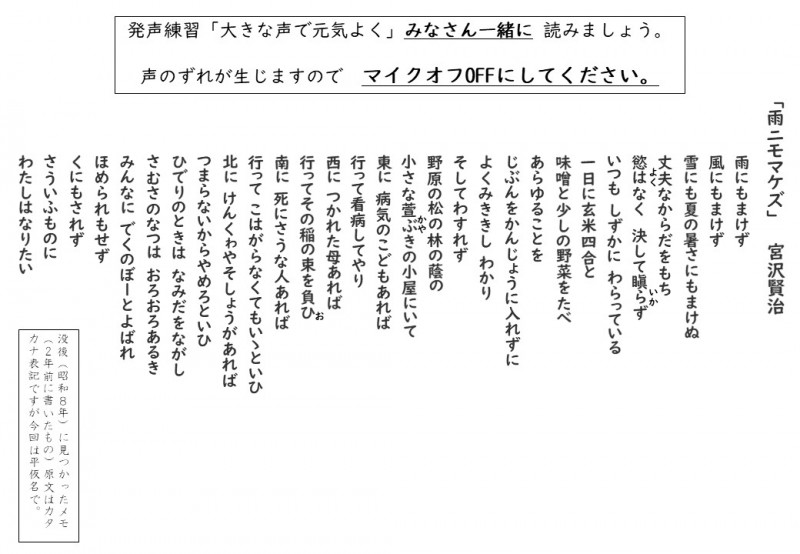 発声練習「大きな声で元気よく」みなさん一緒に 読みましょう。
声のずれが生じますので マイクオフOFFにしてください。
「雨ニモマケズ」 宮沢賢治
雨にもまけず
風にもまけず
雪にも夏の暑さにもまけぬ
丈夫なからだをもち
慾はなく 決して瞋らず
よく いか
いつも しずかに わらっている
一日に玄米四合と
味噌と少しの野菜をたべ
あらゆることを
じぶんをかんじょうに入れずに
よくみききし わかり
そしてわすれず
野原の松の林の蔭の
小さな萱ぶきの小屋にいて
かや
東に 病気のこどもあれば
行って看病してやり
西に つかれた母あれば
行ってその稲の束を負ひ
お
南に 死にさうな人あれば
行って こはがらなくてもいゝといひ
北に けんくゎやそしょうがあれば
つまらないからやめろといひ
ひでりのときは なみだをながし
さむさのなつは おろおろあるき
みんなに でくのぼーとよばれ
ほめられもせず
くにもされず
さういふものに
わたしはなりたい
没後（昭和８年）に見つかったメモ
（２年前に書いたもの）原文はカタ
カナ表記ですが今回は平仮名で。